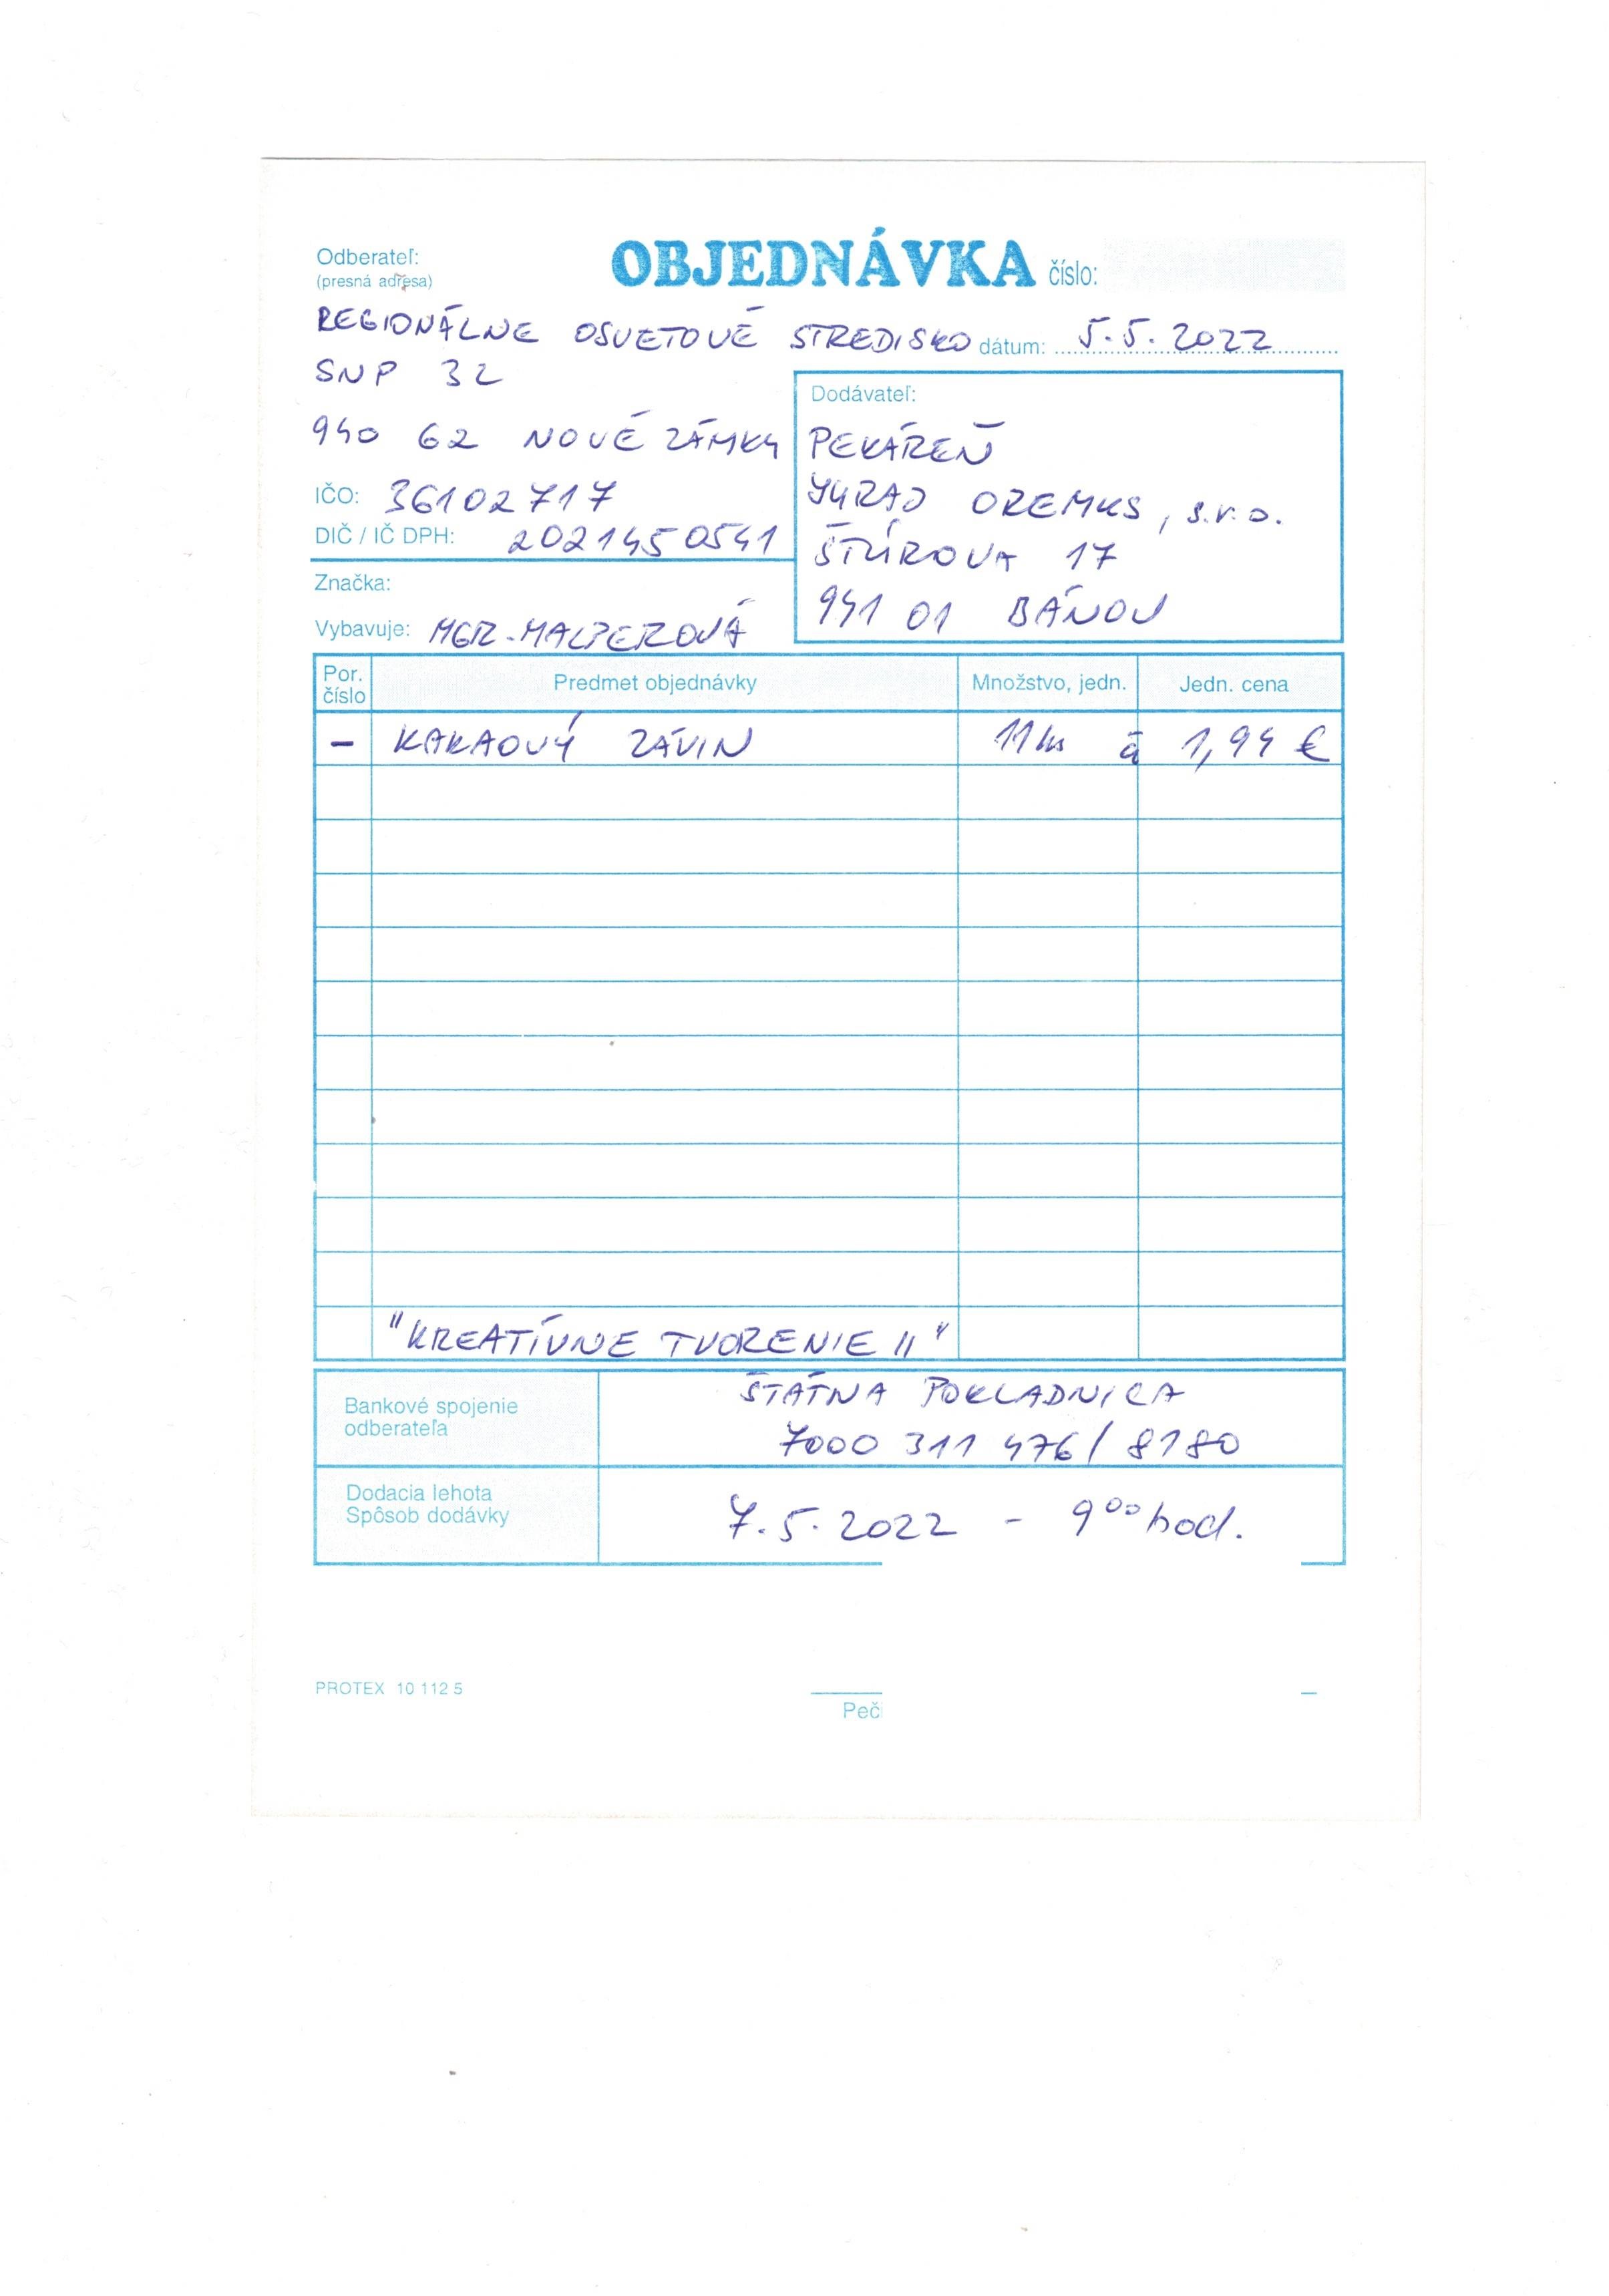 Odberateľ:
(presná adresa)
OBJEDNÁVKA číslo:
REGIONÁLNE OSVETOVÉ STREDISKO
dátum: 5.5.2022
SNP 32
940 62 NOVÉ ZÁMKY
IČO: 36102717
DIČ / IČ DPH: 2021450541
Značka:
Vybavuje: MGR. MALPEROVÁ
Dodávateľ:
PEKÁREŇ
OREMUS, s.r.o.
ŠTÚROVA 17
941 01 BÁNOV
Por. číslo Predmet objednávky Množstvo, jedn. Jedn. cena
– KAKAOVÝ ZÁVIN 11 ks á 1,94 €
"KREATÍVNE TVORENIE II"
Bankové spojenie
odberateľa
ŠTÁTNA POKLADNICA
7000 311 476/8180
Dodacia lehota
Spôsob dodávky
7.5.2022 - 9⁰⁰ hod.
PROTEX 10 112 5
Peči